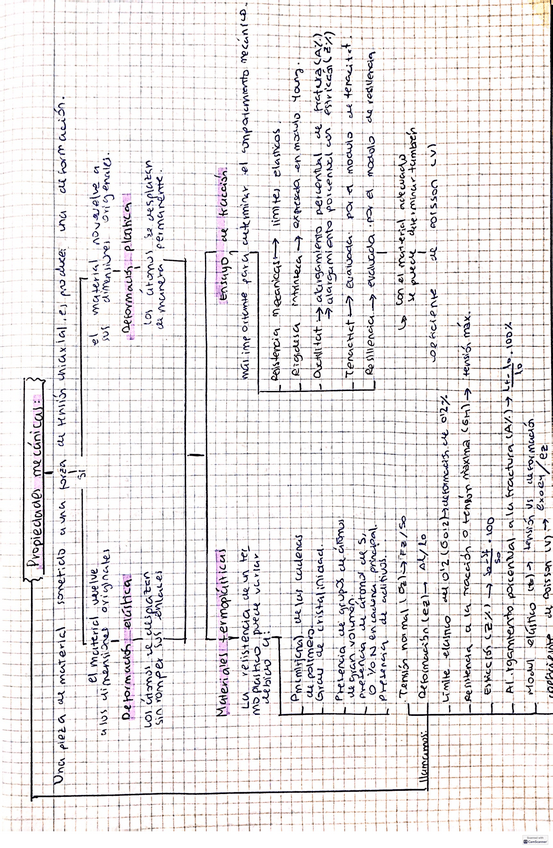 Propiedades mecánicas:
Una pieza de material sometido a una fuerza de tensión uniaxial, es produeix una deformación.
SI
el material vuelve
a los dimensiones originales
Deformación elástica
Los átomos se desplazan
sin romper sus enlaces
el material no vuelve a
sus dimensiones originales.
Deformación plástica
Los átomos se desplazan
de manera permanente.
Materiales termoplásticos
La resistencia de un ter
moplástico puede variar
debido a:
- Pm mitjana de las cadenas
de polímero.
- Grau de cristalinidad.
- Presencia de grupos de átomos
de gran volumen.
- presencia de átomos de S,
O y/o N en cadena principal.
- Presencia de aditivos.
Ensayo de tracción
más importante para determinar el comportamiento mecánico.
- Resistencia mecánicas → límites elásticos.
- Rigidesa intrínseca → expresada en modulo Young.
- Ductilitat → alargamiento percentual de fractura (A%)
→ alargamiento porcentual con estricción (Z%)
- Tenacitat → evaluada por el modulo de tenacitat.
- Resiliencia → evaluada por el modulo de resiliencia
↳ con el material adecuado
se puede determinar también
coeficiente de Poisson (V)
llamamos:
- Tensión normal (σz) → Fz/S0
- Deformación (ez) → Δl/l0
- Límite elástico del 0'2 (σ0'2) → deformación de 0'2%
- Resistencia a la tracción o tensión máxima (σM) → tensión máx.
- Estricción (Z%) → S0-Sf/S0 · 100
- Allargamiento porcentual a la fractura (A%) → Lf-L0/L0 · 100%
- Modul elástico (E) → tensión vs deformación
- coeficiente de Poisson (V) → exoey/ez
CamScanner